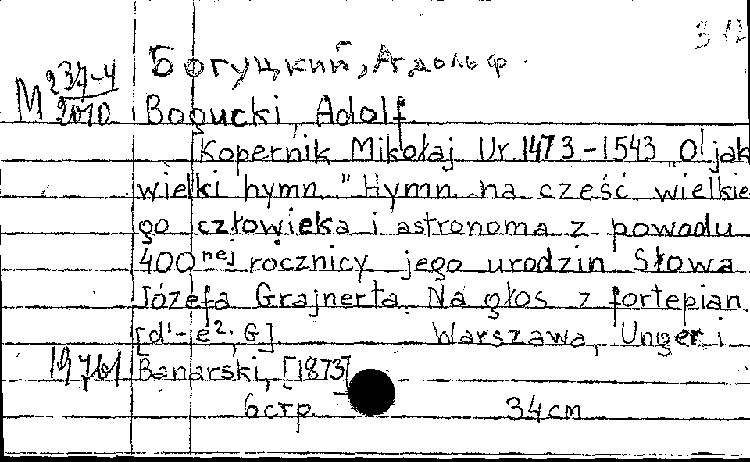 3 12
Богуцкий, Адольф.
M 234-4
2010
Bogucki, Adolf
Kopernik Mikołaj Ur. 1473-1543 O! jak
wielki hymn. "Hymn na cześć wielkie
go człowieka i astronoma z powodu
400nej rocznicy jego urodzin Słowa
Józefa Grajnerta. Na głos z fortepian.
[d¹-e²; G]. Warszawa, Unger i
19761 Banarski, [1873]
6 стр. 34 cm